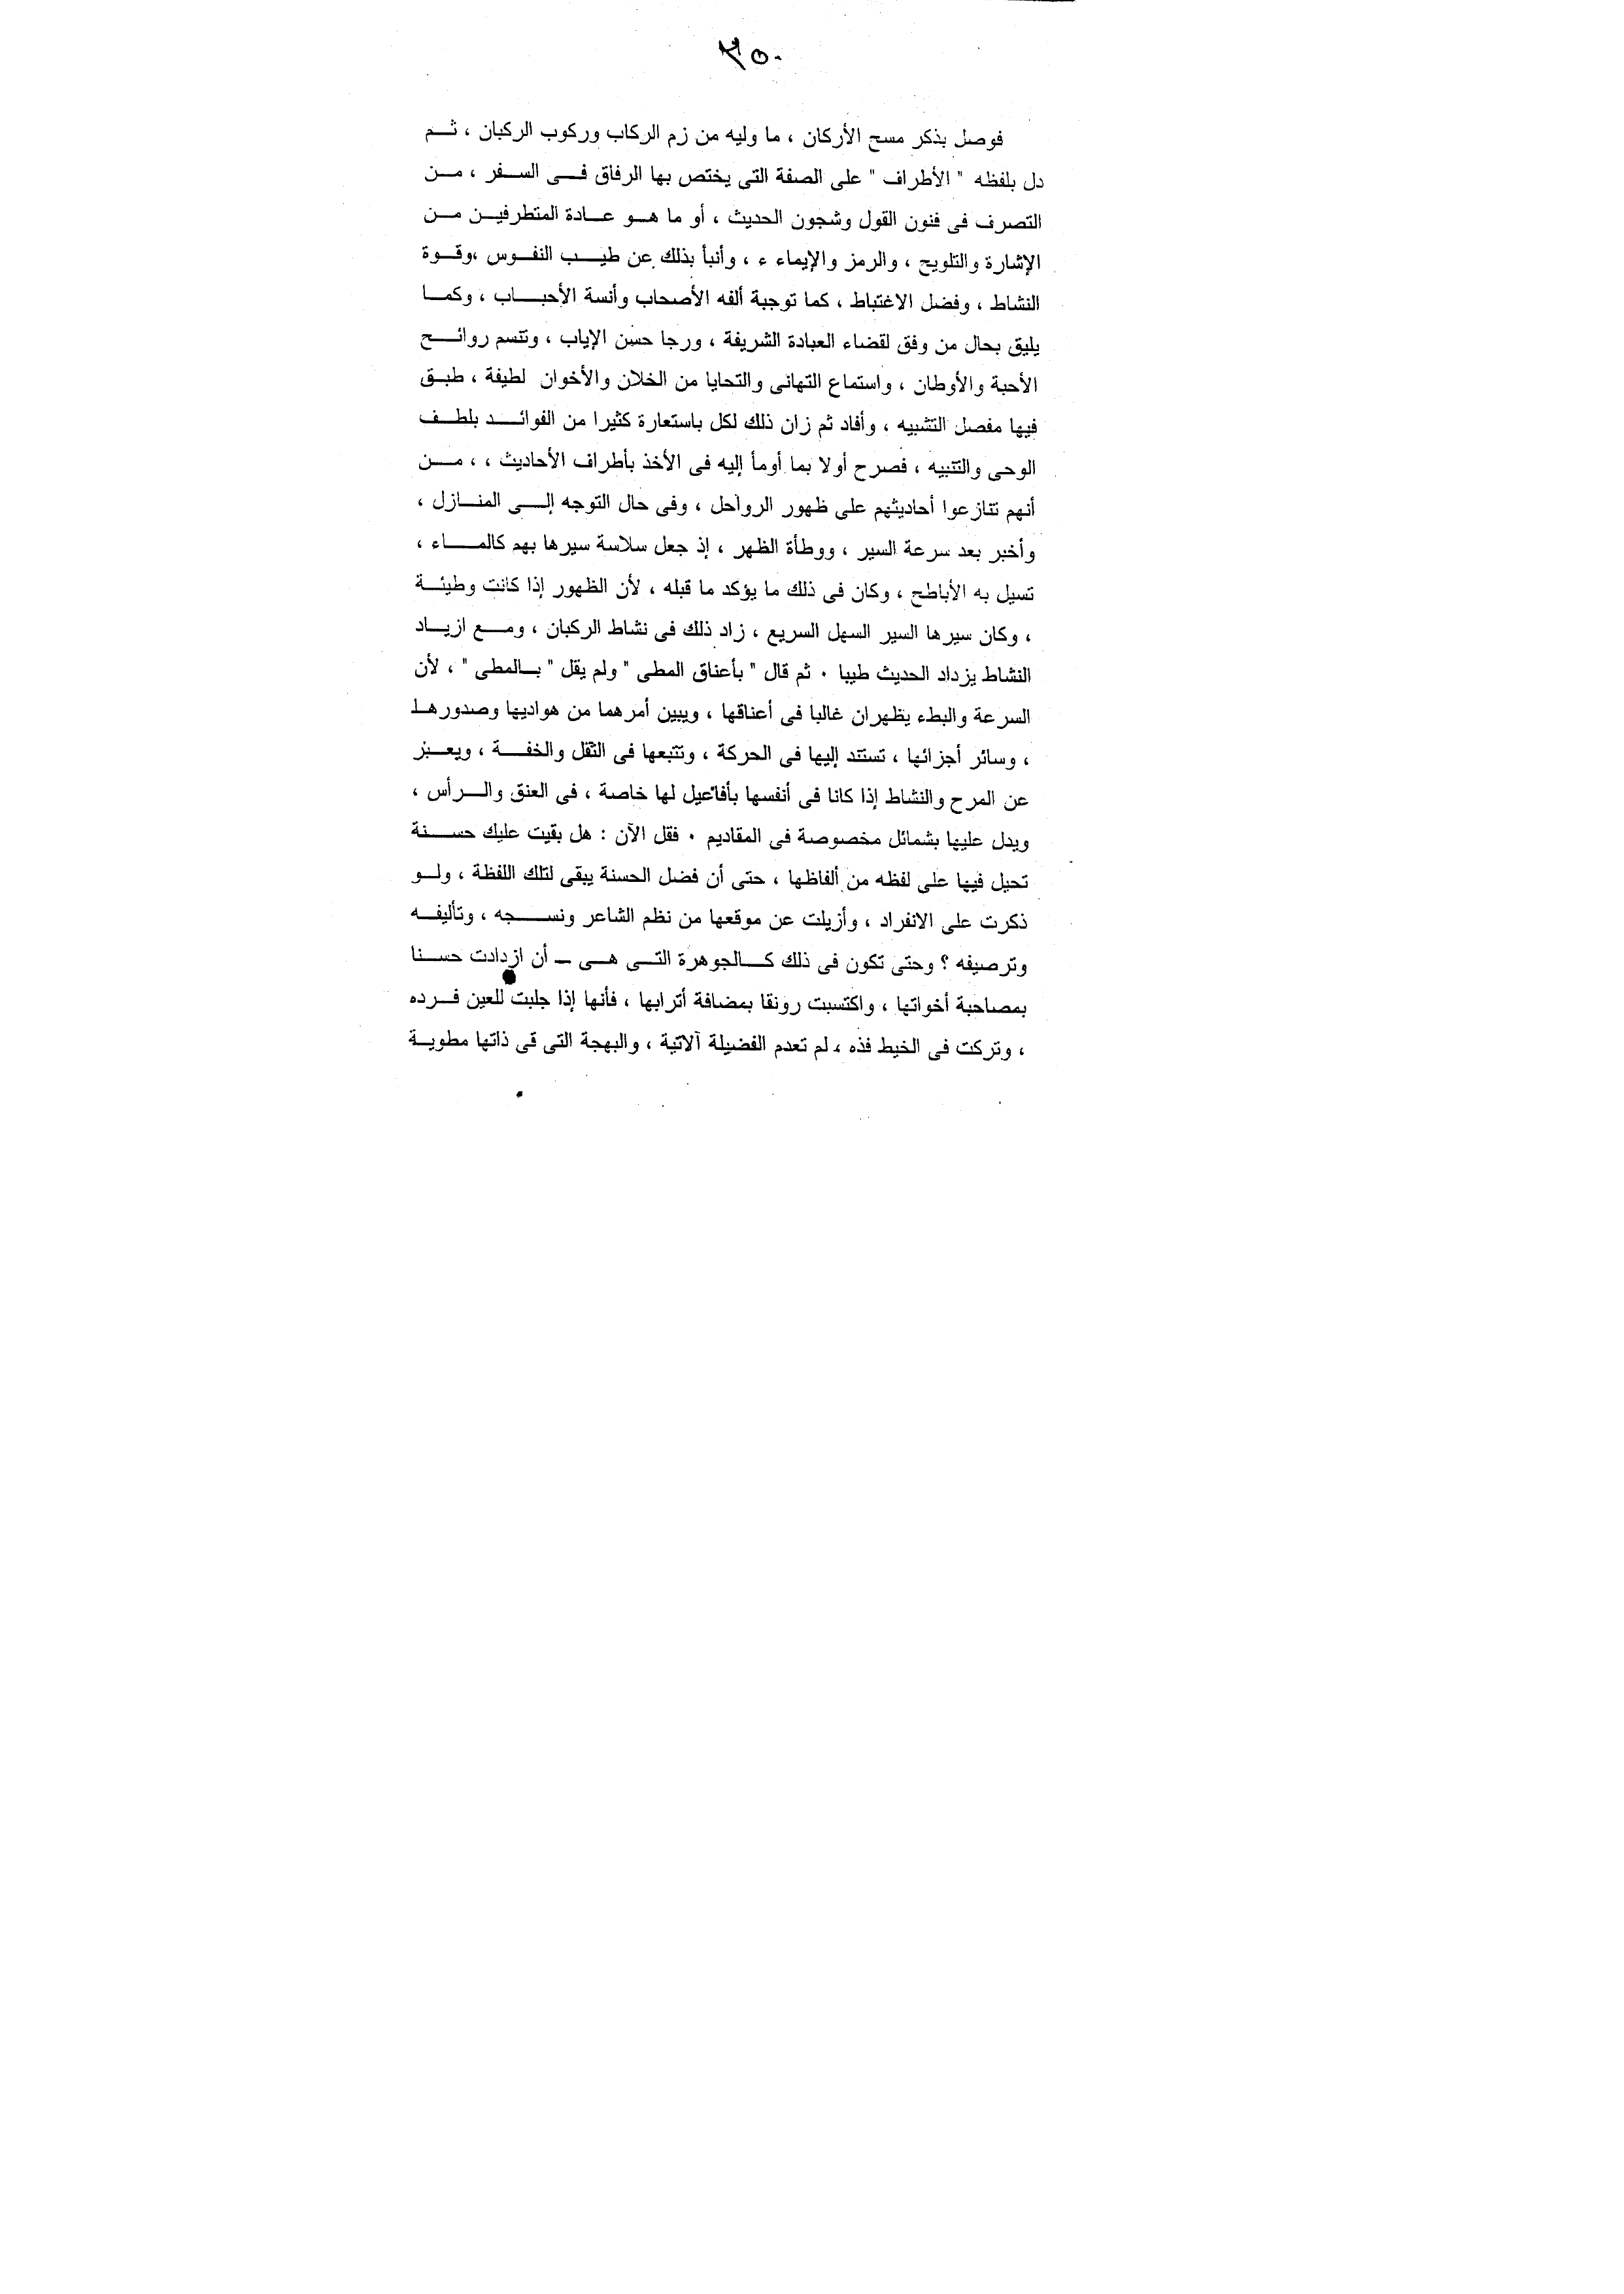 ٣٥٠
فوصل بذكر مسح الأركان ، ما وليه من زم الركاب وركوب الركبان ، ثم
دل بلفظه " الأطراف " على الصفة التى يختص بها الرفاق فى السفر ، من
التصرف فى فنون القول وشجون الحديث ، أو ما هو عادة المتطرفين من
الإشارة والتلويح ، والرمز والإيماء ء ، وأنبأ بذلك عن طيب النفوس ،وقوة
النشاط ، وفضل الاغتباط ، كما توجبة ألفه الأصحاب وأنسة الأحباب ، وكما
يليق بحال من وفق لقضاء العبادة الشريفة ، ورجا حسن الإياب ، وتنسم روائح
الأحبة والأوطان ، واستماع التهانى والتحايا من الخلان والأخوان لطيفة ، طبق
فيها مفصل التشبيه ، وأفاد ثم زان ذلك لكل باستعارة كثيرا من الفوائد بلطف
الوحى والتنبيه ، فصرح أولا بما أومأ إليه فى الأخذ بأطراف الأحاديث ، ، من
أنهم تنازعوا أحاديثهم على ظهور الرواحل ، وفى حال التوجه إلى المنازل ،
وأخبر بعد سرعة السير ، ووطأة الظهر ، إذ جعل سلاسة سيرها بهم كالماء ،
تسيل به الأباطح ، وكان فى ذلك ما يؤكد ما قبله ، لأن الظهور إذا كانت وطيئة
، وكان سيرها السير السهل السريع ، زاد ذلك فى نشاط الركبان ، ومع ازياد
النشاط يزداد الحديث طيبا ٠ ثم قال " بأعناق المطى " ولم يقل " بالمطى " ، لأن
السرعة والبطء يظهران غالبا فى أعناقها ، ويبين أمرهما من هواديها وصدورها
، وسائر أجزائها ، تستند إليها فى الحركة ، وتتبعها فى الثقل والخفة ، ويعبر
عن المرح والنشاط إذا كانا فى أنفسها بأفاعيل لها خاصة ، فى العنق والرأس ،
ويدل عليها بشمائل مخصوصة فى المقاديم ٠ فقل الآن : هل بقيت عليك حسنة
تحيل فيها على لفظه من ألفاظها ، حتى أن فضل الحسنة يبقى لتلك اللفظة ، ولو
ذكرت على الانفراد ، وأزيلت عن موقعها من نظم الشاعر ونسجه ، وتأليفه
وترصيفه ؟ وحتى تكون فى ذلك كالجوهرة التى هى – أن ازدادت حسنا
بمصاحبة أخواتها ، واكتسبت رونقا بمضافة أترابها ، فأنها إذا جلبت للعين فرده
، وتركت فى الخيط فذه ، لم تعدم الفضيلة آلاتية ، والبهجة التى قى ذاتها مطوية